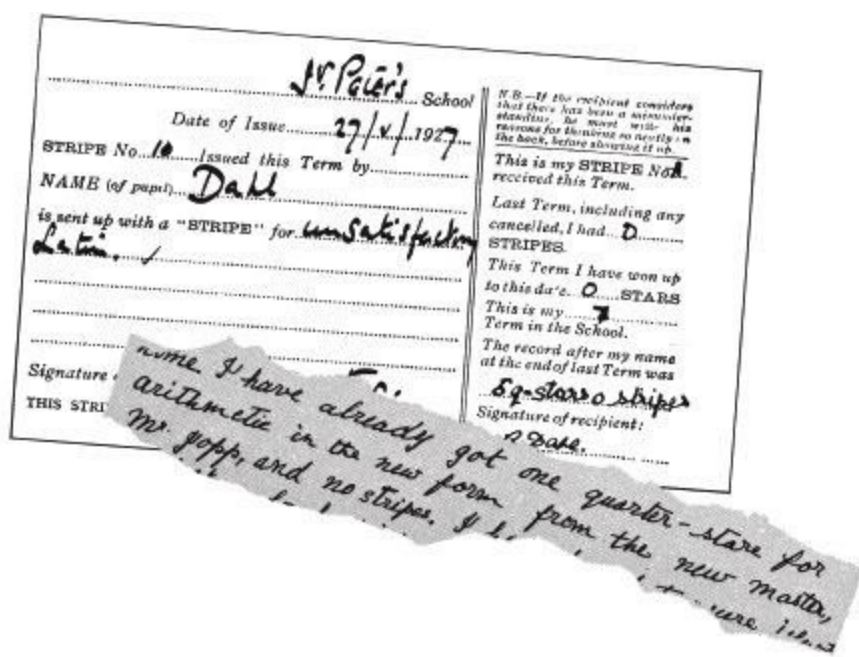 St. Peter's School
Date of Issue 27/V/1927
STRIPE No. 10 Issued this Term by
NAME (of pupil) Dahl
is sent up with a "STRIPE" for unsatisfactory
Latin.
Signature
THIS STRI
N.B.—If the recipient considers
that there has been a misunder-
standing, he must write his
reasons for thinking so neatly on
the back, before showing it up.
This is my STRIPE No.
received this Term.
Last Term, including any
cancelled, I had
STRIPES.
This Term I have won up
to this date 0 STARS
This is my 7
Term in the School.
The record after my name
at the end of last Term was
5 q-stars 0 stripes
Signature of recipient:
R Dahl.
I have already got one quarter-stare for
arithmetic in the new form from the new master,
Mr. Jopp, and no stripes. I